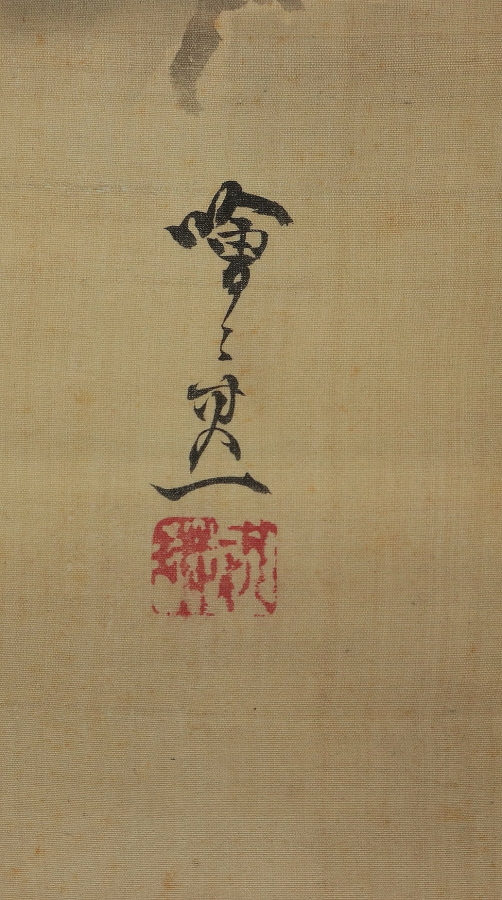 噲々其一